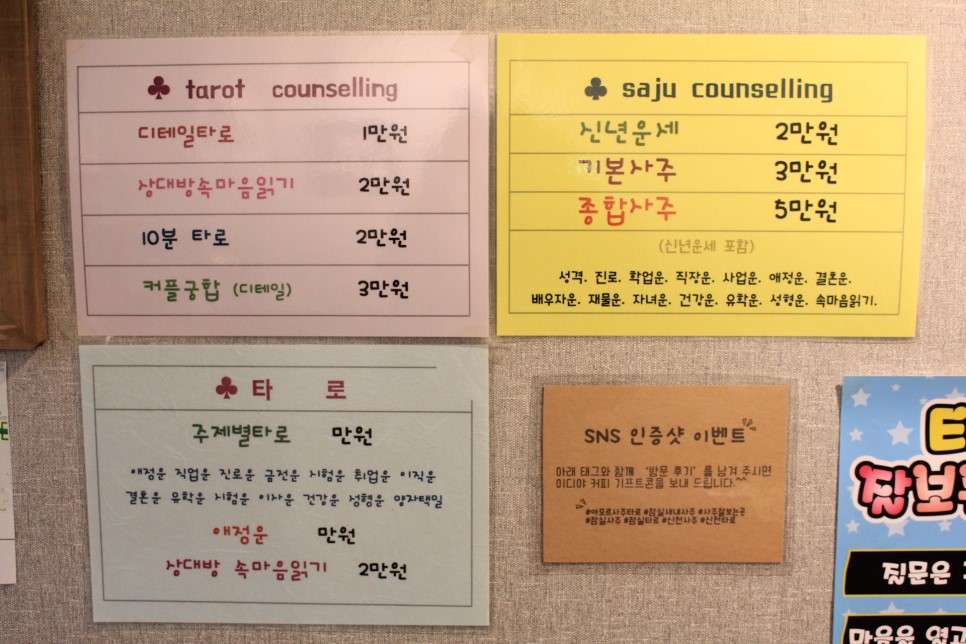 ♣ tarot counselling
디테일타로 1만원
상대방속마음읽기 2만원
10분 타로 2만원
커플궁합 (디테일) 3만원
♣ saju counselling
신년운세 2만원
기본사주 3만원
종합사주 5만원
(신년운세 포함)
성격. 진로. 학업운. 직장운. 사업운. 애정운. 결혼운.
배우자운. 재물운. 자녀운. 건강운. 유학운. 성형운. 속마음읽기.
♣ 타 로
주제별타로 만원
애정운 직업운 진로운 금전운 시험운 취업운 이직운
결혼운 유학운 시험운 이사운 건강운 성형운 양자택일
애정운 만원
상대방 속마음읽기 2만원
SNS 인증샷 이벤트
아래 태그와 함께 '방문 후기' 를 남겨 주시면
이디야 커피 기프트콘을 보내 드립니다^^
#아모르사주타로 #잠실새내사주 #사주잘보는곳
#잠실사주 #잠실타로 #신천사주 #신천타로
질문은
마음을